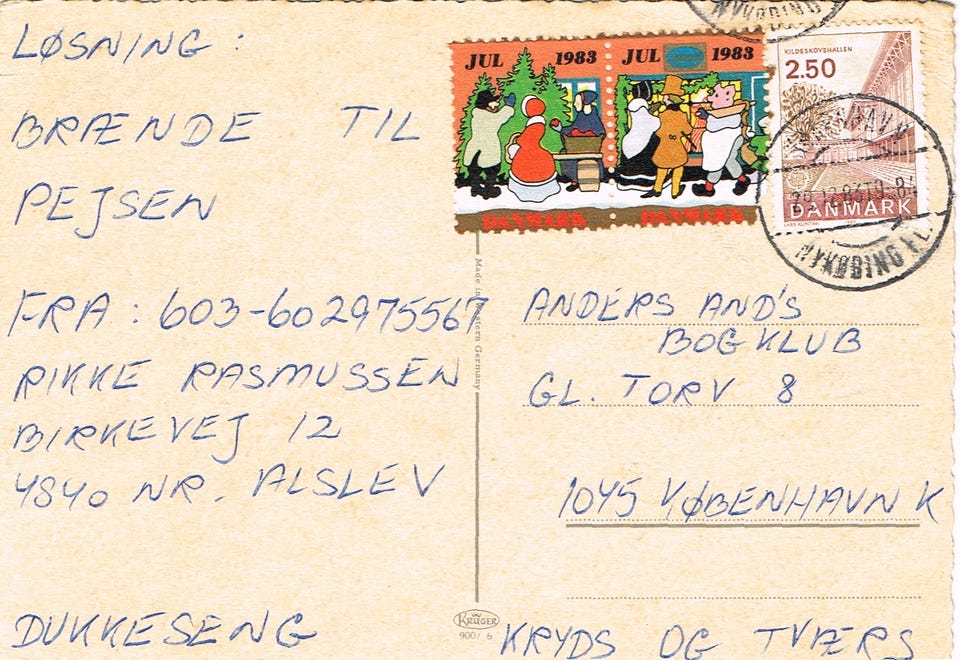 LØSNING :
BRÆNDE TIL
PEJSEN
FRA : 603-602975567
RIKKE RASMUSSEN
BIRKEVEJ 12
4840 NR. ALSLEV
DUKKESENG
JUL 1983
DANMARK
JUL 1983
DANMARK
KILDESKOVSHALLEN
2.50
DANMARK
NYKØBING
Made in Western Germany
ANDERS AND'S
BOGKLUB
GL. TORV 8
1045 KØBENHAVN K
KRÜGER
900/ 6
KRYDS OG TVÆRS